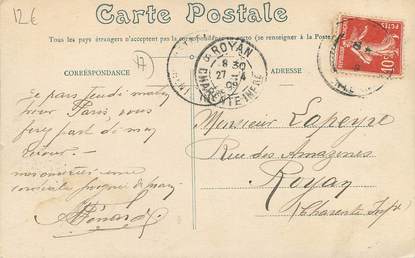 12€
Carte Postale
Tous les pays étrangers n'acceptent pas la correspondance au recto (se renseigner à la Poste)
17
ROYAN
8 30
27 4
09
CHARENTE INFRE
POSTES
10
CORRESPONDANCE
ADRESSE
Je pars jeudi matin
pour Paris, vous
ferez part de mon
retour.
Monsieur Lapeyre
Rue des Amazones
Royan
(Charente Infre)